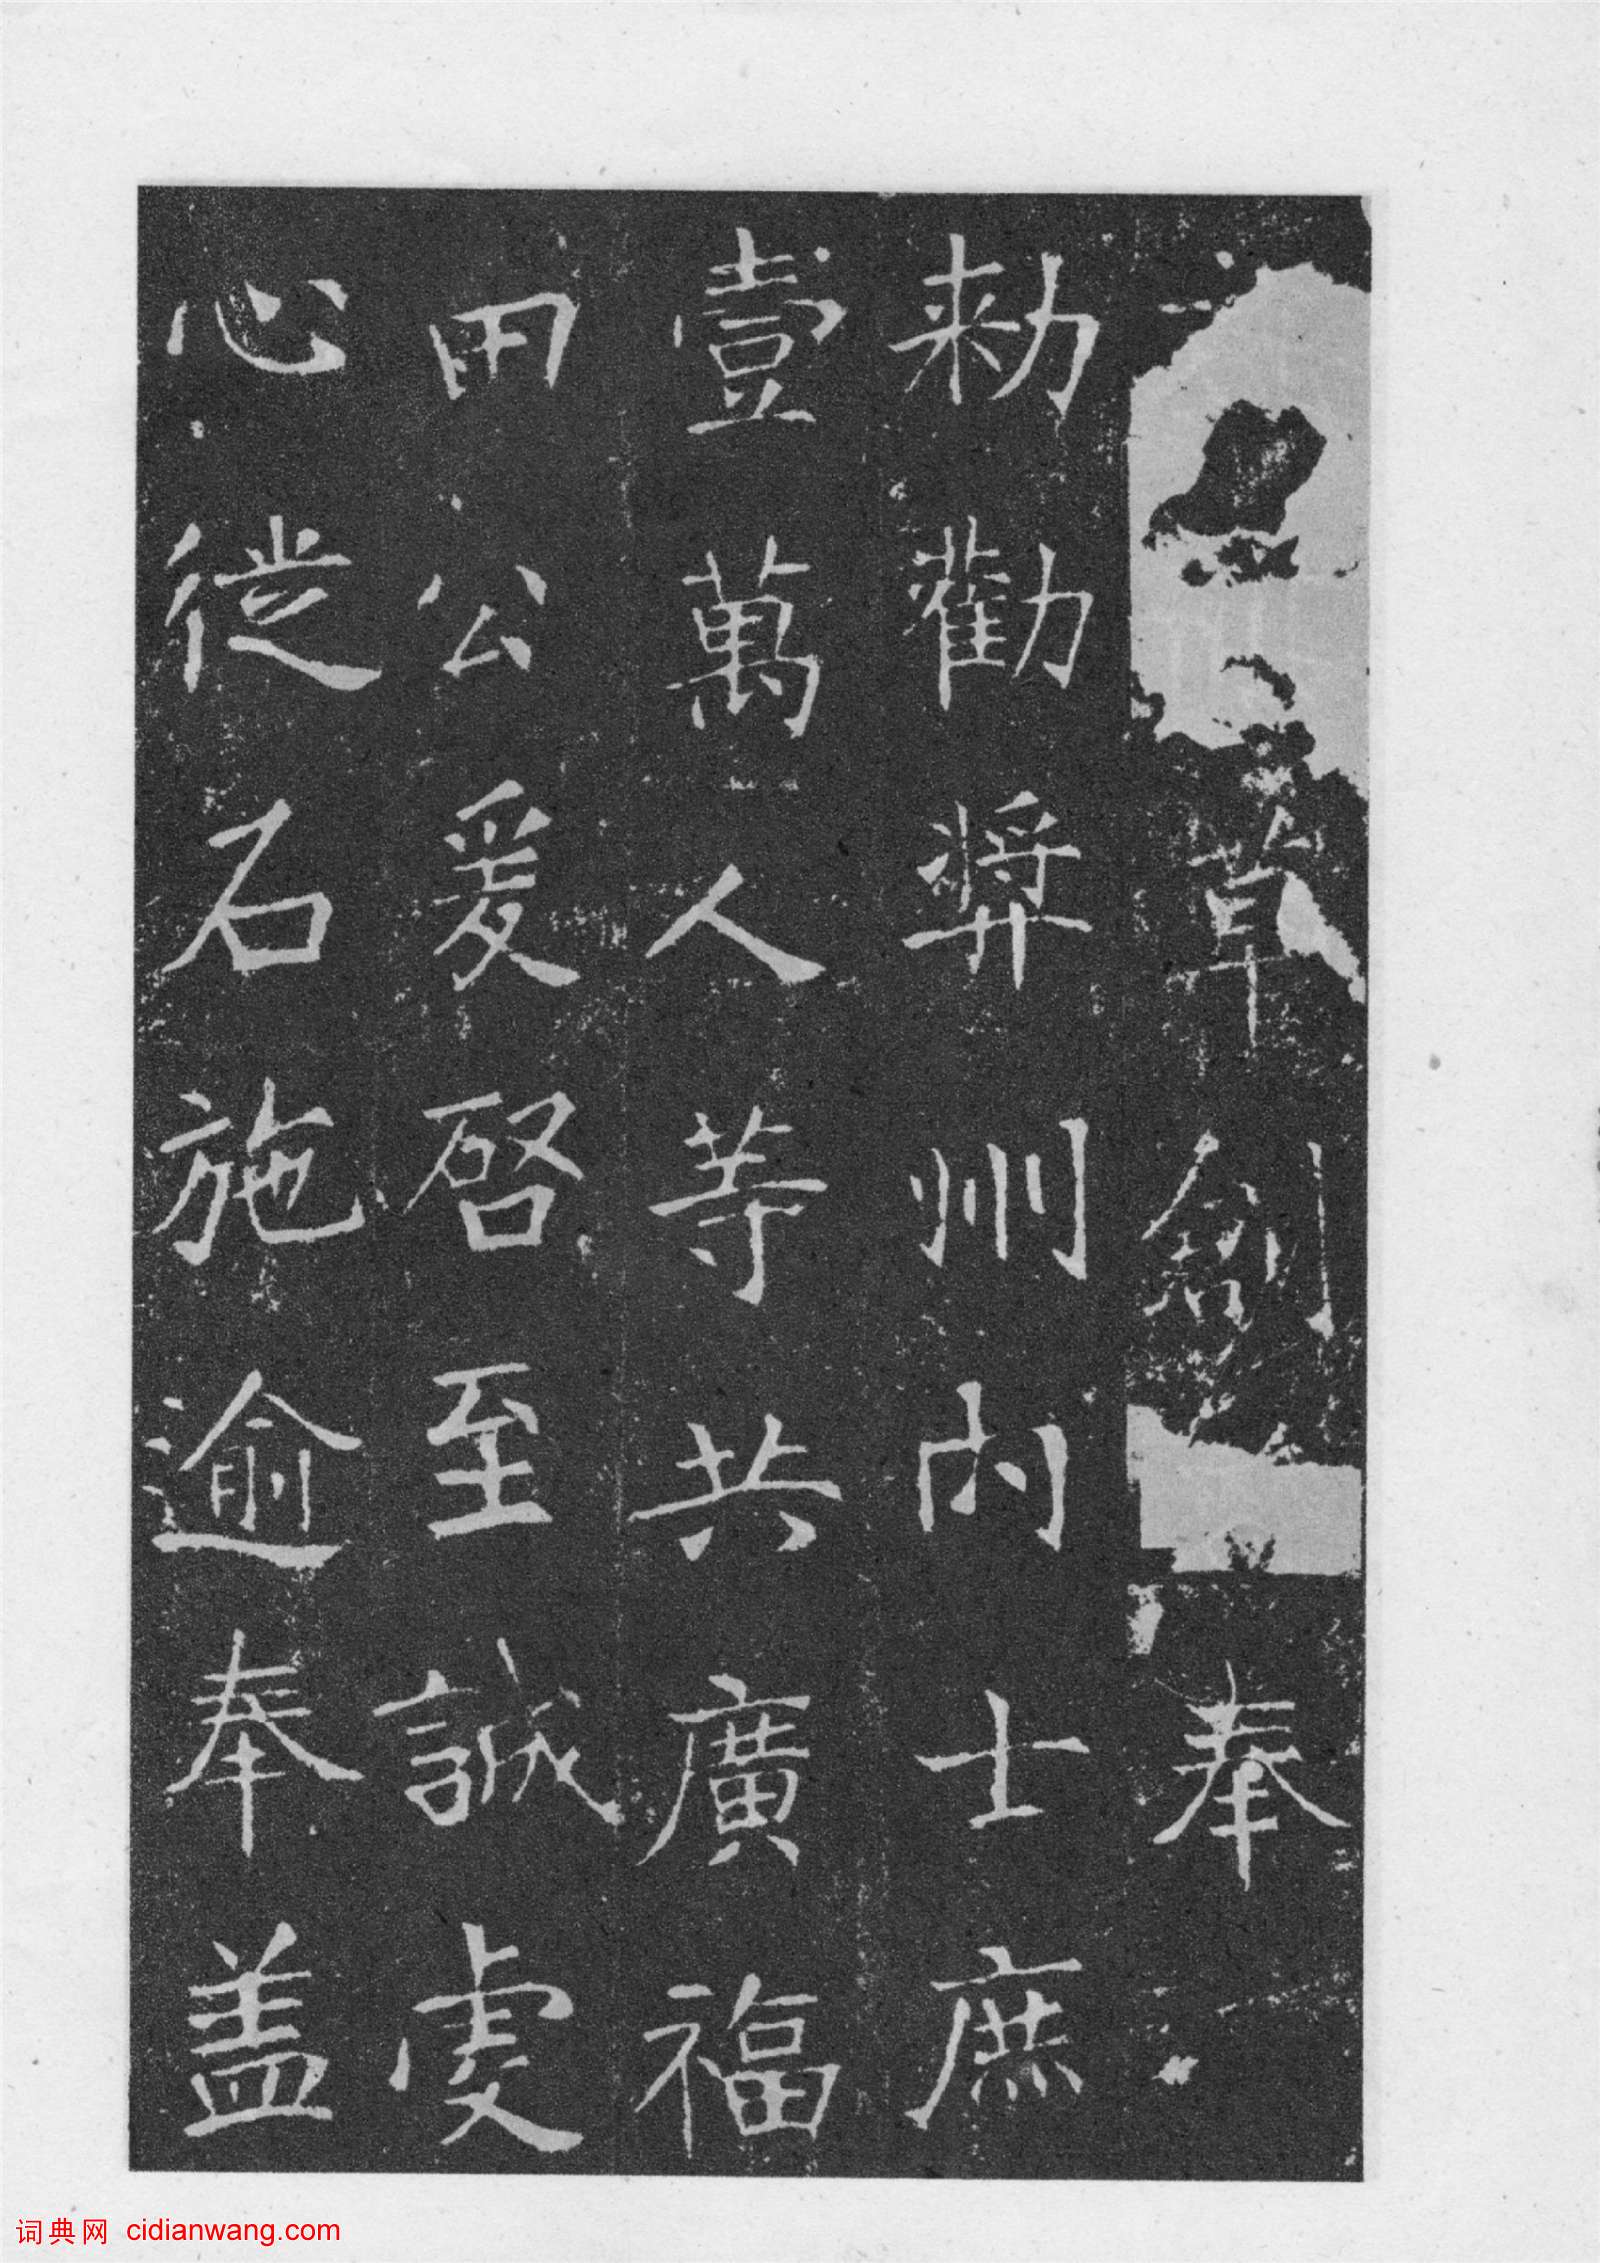 草創奉
勑勸獎州内士庶
壹萬人等共廣福
田公爰啓至誠虔
心從石施逾奉盖
词典网 cidianwang.com